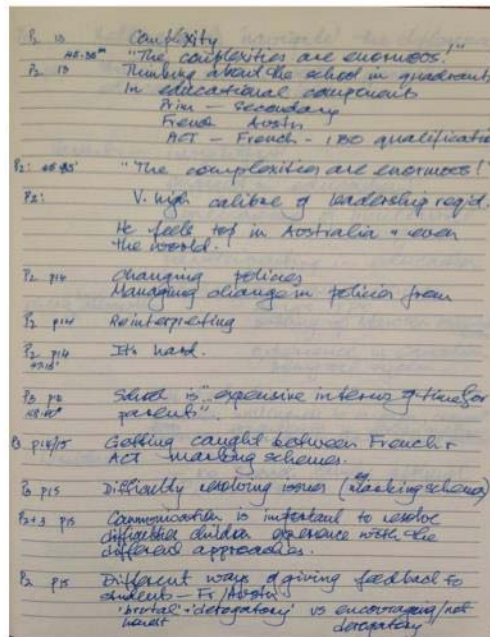 P2 13 Complexity
"The complexities are enormous!"
P2 13 Thinking about the school in quadrants
In educational components
Prim - Secondary
French Austn
ACT - French - IBO qualificatio
P2: "The complexities are enormous!"
P2: V. high calibre of leadership reqd.
He feels top in Australia + even
the world.
P2 p14 Changing policies
Managing change in policies from
P2 p14 Reinterpreting
P2 p14 It's hard.
P3 School is "expensive in terms of time for
parents".
p14/15 Getting caught between French +
ACT marking schemes.
p15 Difficulty resolving issues (eg marking schemes)
P2+3 p15 Communication is important to resolve
difficulties children experience with the
different approaches.
P2 p15 Different ways of giving feedback to
students - Fr/Austn
'brutal + derogatory' vs encouraging/not
harsh derogatory